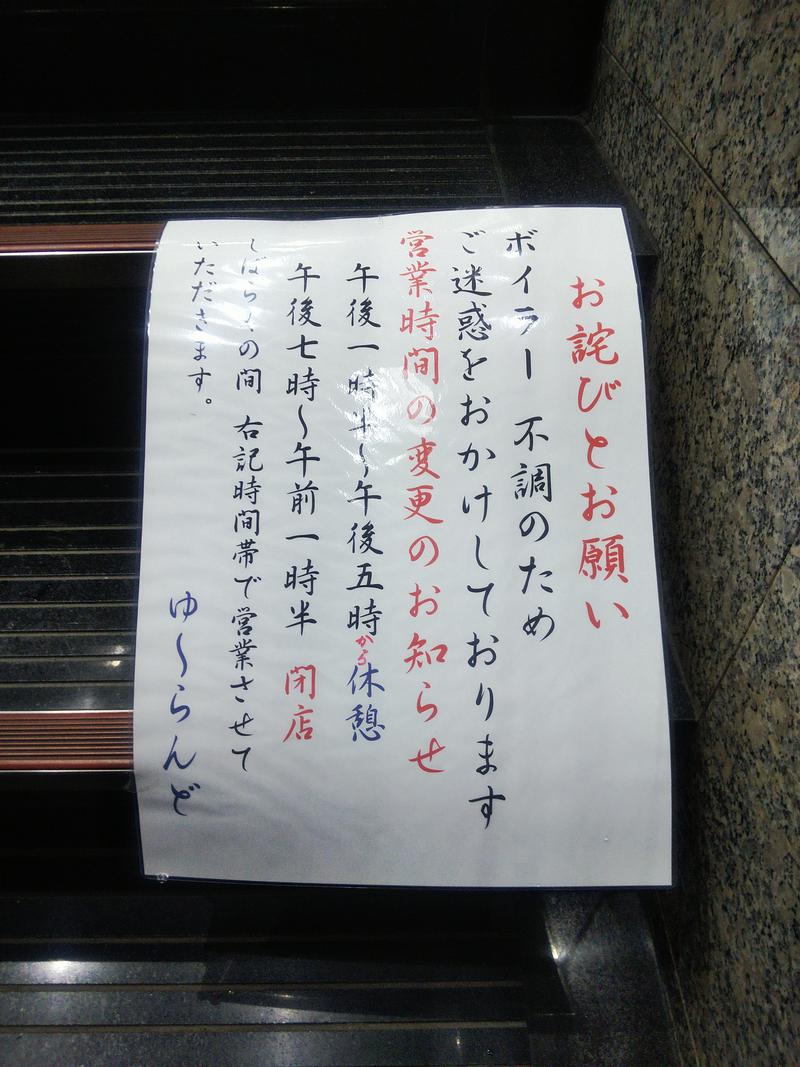 お詫びとお願い
ボイラー 不調のため
ご迷惑をおかけしております
営業時間の変更のお知らせ
午後一時半〜午後五時から休憩
午後七時〜午前一時半 閉店
しばらくの間 右記時間帯で営業させて
いただきます。
ゆ〜らんど